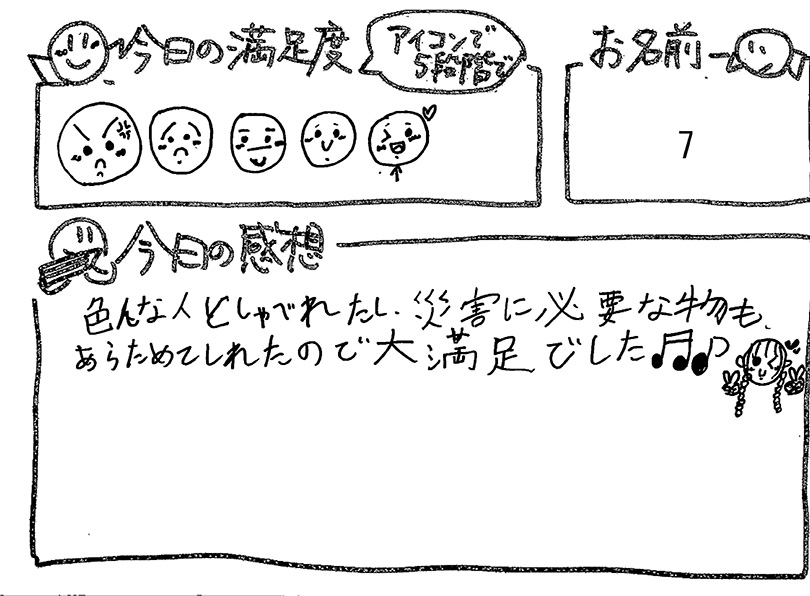 今日の満足度
アイコンで
5段階で
お名前
7
今日の感想
色んな人としゃべれたし、災害に必要な物も、
あらためてしれたので大満足でした